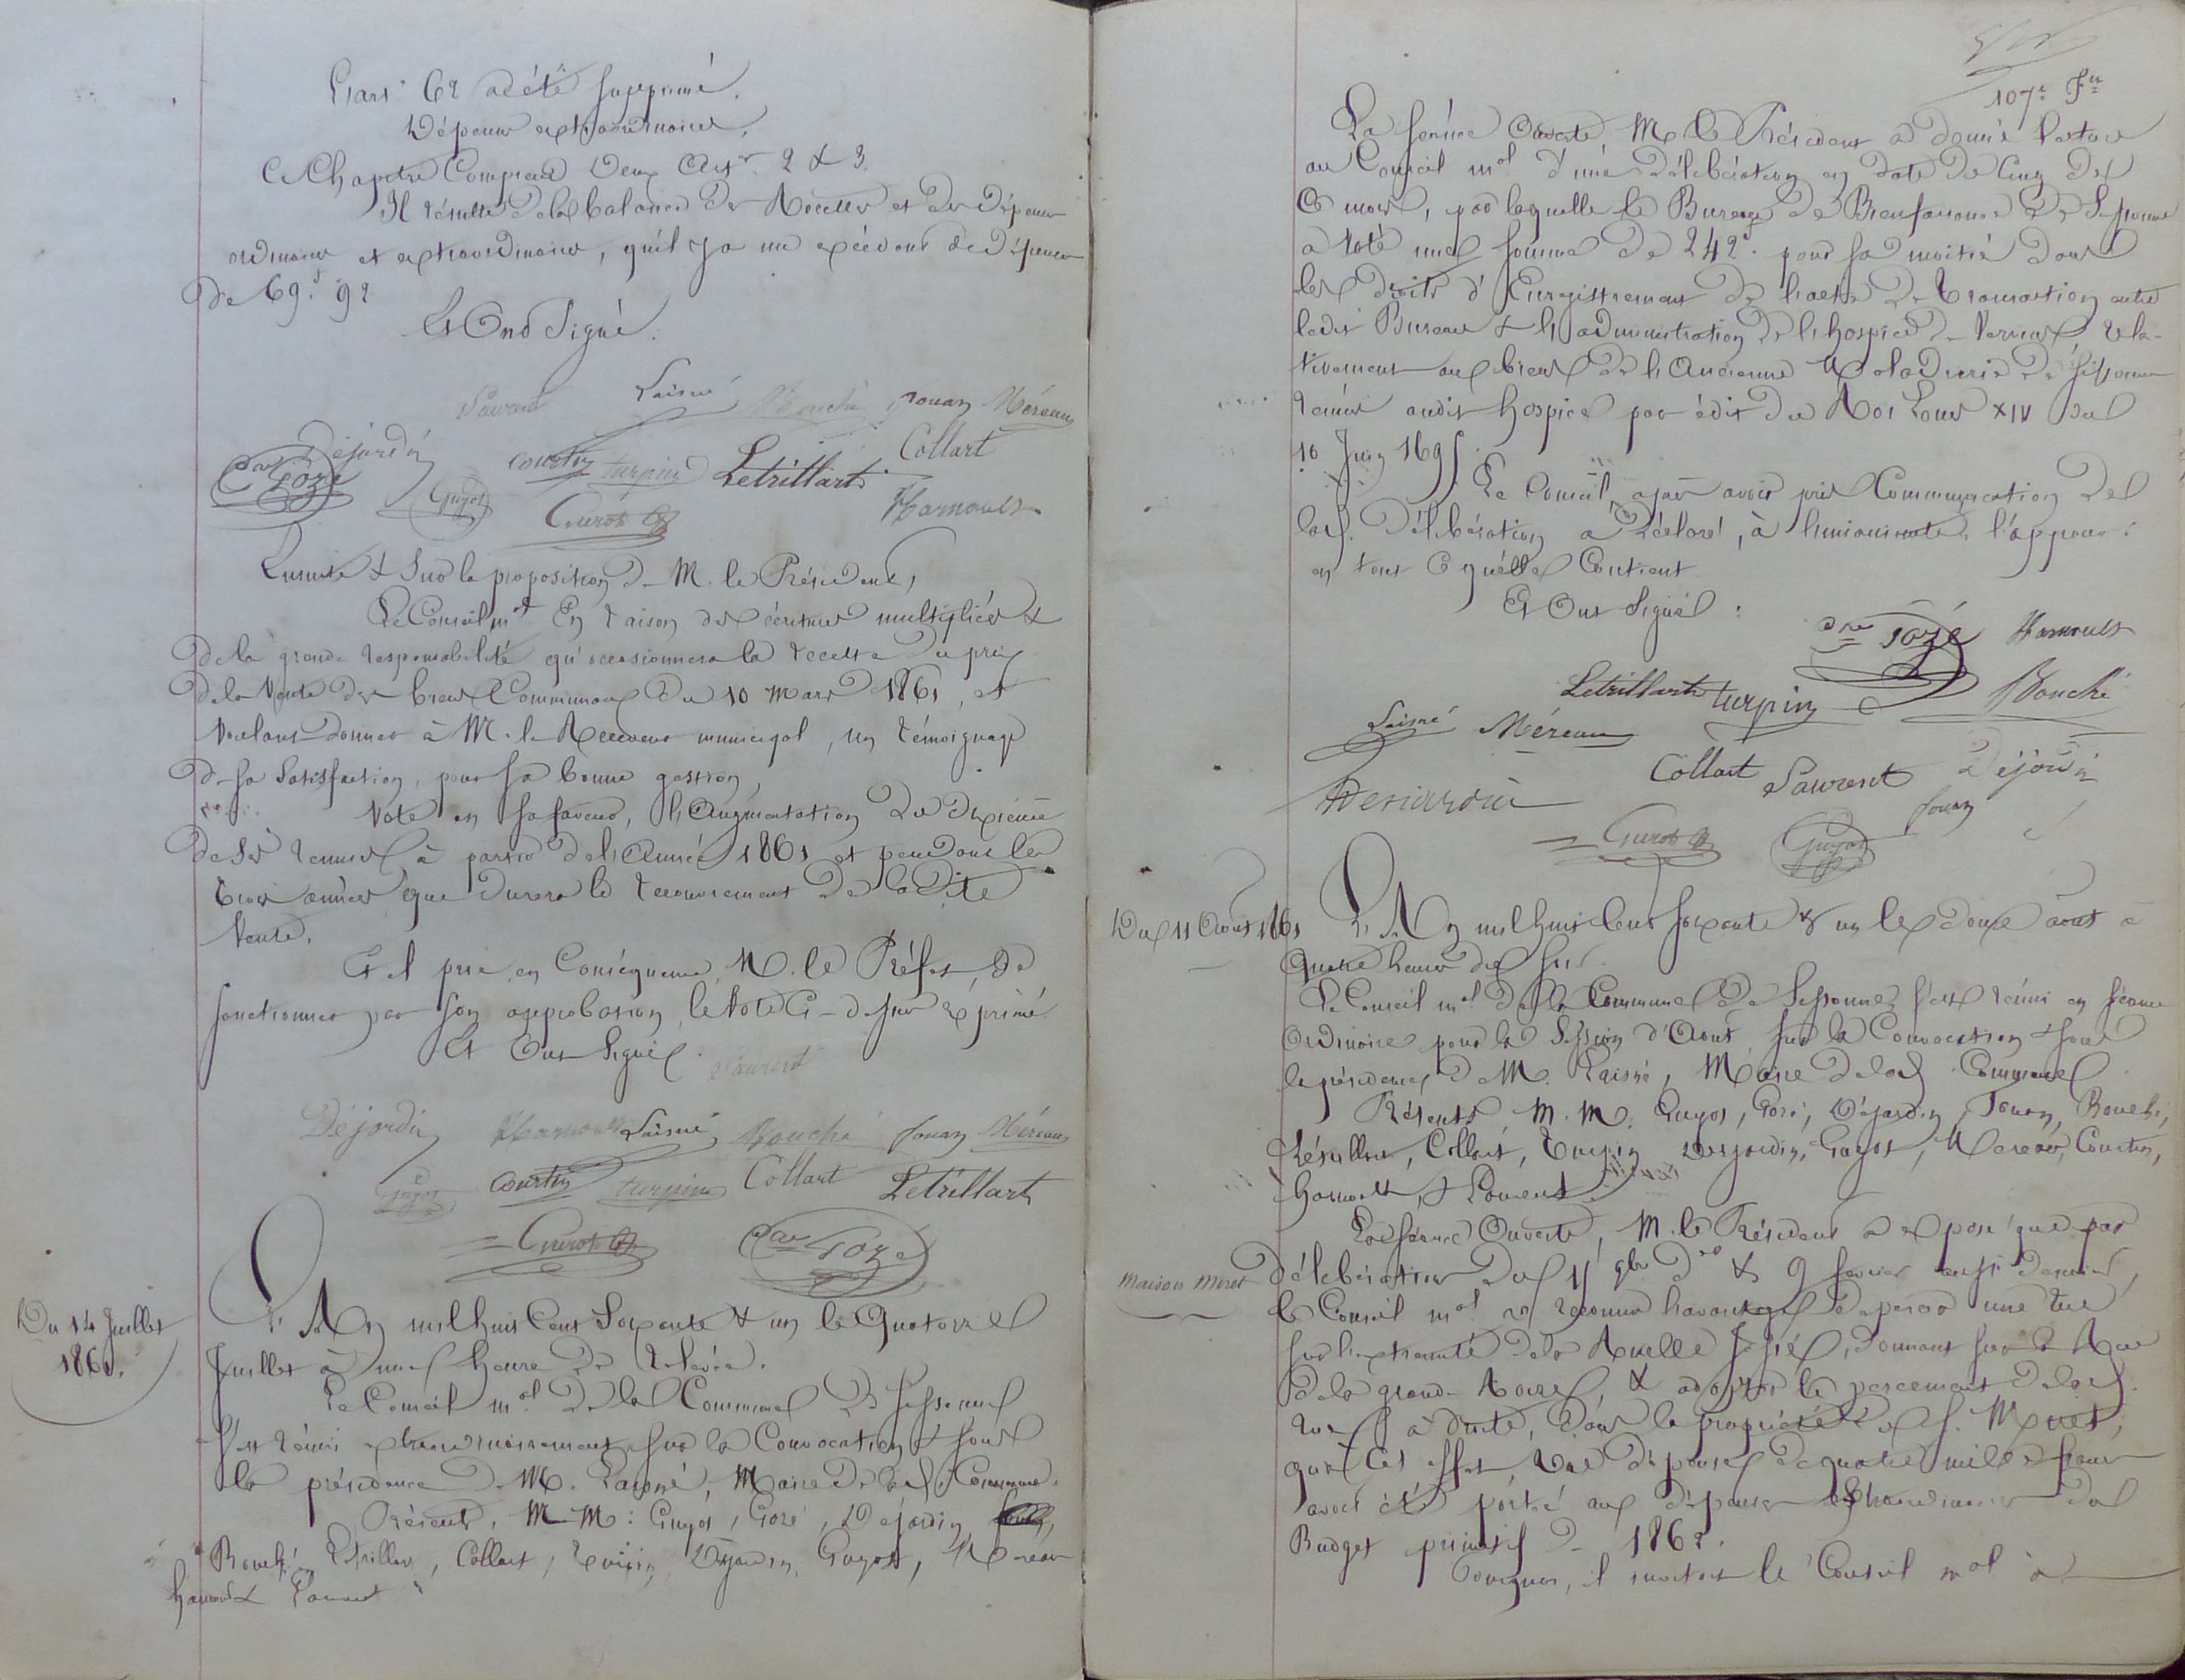 L'art. 62 a été supprimé.
Dépenses extraordinaires,
Ce Chapitre Comprend deux Art. 2 & 3.
Il résulte de la balance des Recettes et des Dépenses
ordinaires et extraordinaires, qu'il y a un excédent de dépenses
de 69.f 92
Et Ont Signé.
Laurent Laisné Bouché Jouan Méreau
Déjardin Courtin turpin Letrillart Collart
Gozé Guyot Gurot Harnoult
Ensuite & Sur la proposition de M. le Président,
Le Conseil m.al En raison des écritures multipliées &
de la grande responsabilité qu'occasionnera la recette du prix
de la Vente des biens Communaux du 10 Mars 1861, et
Voulant donner à M. le Receveur municipal, un témoignage
de sa Satisfaction, pour sa bonne gestion,
Vote en sa faveur, l'Augmentation du dixième
de ses remises à partir de l'Année 1861 et pendant les
trois années que durera le recouvrement de la dite
Vente.
Et il prie en Conséquence, M. le Préfet, de
sanctionner par son approbation, le Vote Ci-dessus exprimé.
Et Ont Signé. Laurent
Déjardin Harnoult Laisné Bouché Jouan Méreau
Guyot Courtin turpin Collart Letrillart
Gurot Gozé
Du 14 Juillet
1861.
L'An mil huit Cent Soixante & un le Quatorze
Juillet à une heure de Relevée.
Le Conseil m.al de la Commune de Sissonne
s'est réuni extraordinairement sur la Convocation & sous
la présidence de M. Laisné, Maire de lad. Commune.
Présents, M M : Guyot, Gozé, Déjardin,
Bouché, Létrillart, Collart, Turpin, Desjardin, Guyot, Méreau
harnoult & Laurent
107e Fet
La Séance Ouverte, M. le Président a donné lecture
au Conseil m.al d'une délibération en date du Cinq de
Ce mois, par laquelle le Bureau de Bienfaisance de Sissonne
a Voté une somme de 242f. pour sa moitié dans
les droits d'Enregistrement de l'acte de transaction entre
ledit Bureau & l'administration de l'hospice de Vervins rela-
tivement aux biens de l'Ancienne Maladrerie de Sissonne
réunis audit hospice par édit du Roi Louis XIV du
10 Juin 1695.
Le Conseil, après avoir pris Communication de
lad. délibération a déclaré, à l'unanimité, l'approuver
en tout Ce qu'elle Contient
Et Ont Signé :
Gozé Harnoult
Letrillart turpin Bouché
Laisné Méreau
Collart Laurent Déjardin
Desjardin Jouan
Gurot Guyot
Du 11 Août 1861
L'An mil huit Cent soixante & un le onze août à
Quatre heures du soir.
Le Conseil m.al de la Commune de Sissonne s'est réuni en séance
Ordinaire pour la Session d'Août, sur la Convocation & sous
la présidence de M. Laisné, Maire de lad. Commune
Présents M. M. Guyot, Gozé, Déjardin, Jouan, Bouché,
Létrillart, Collart, Turpin, Desjardin, Guyot, Mereau, Courtin,
harnoult, & Laurent
La séance Ouverte, M. le Président a exposé que par
maison Moret
délibérations du 11 9bre d.er & 9 février aussi dernier,
le Conseil m.al a reconnu l'avantage de percer une rue
sur l'extrémité de la Ruelle donnant sur la Rue
de la grande & adopté le percement de lad.
rue à droite, dans la propriété du S. Moret,
qu'à Cet effet, une dépense de quatre mille francs
avait été portée aux dépenses extraordinaires du
Budget primitif de 1862.
il invitait le Conseil m.al à